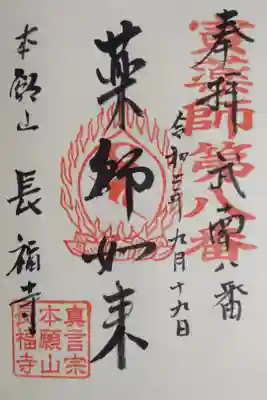 奉拝 武南八番
霊薬師第八番
令和二年九月十九日
薬師如来
本願山 長福寺
真言宗
本願山
長福寺